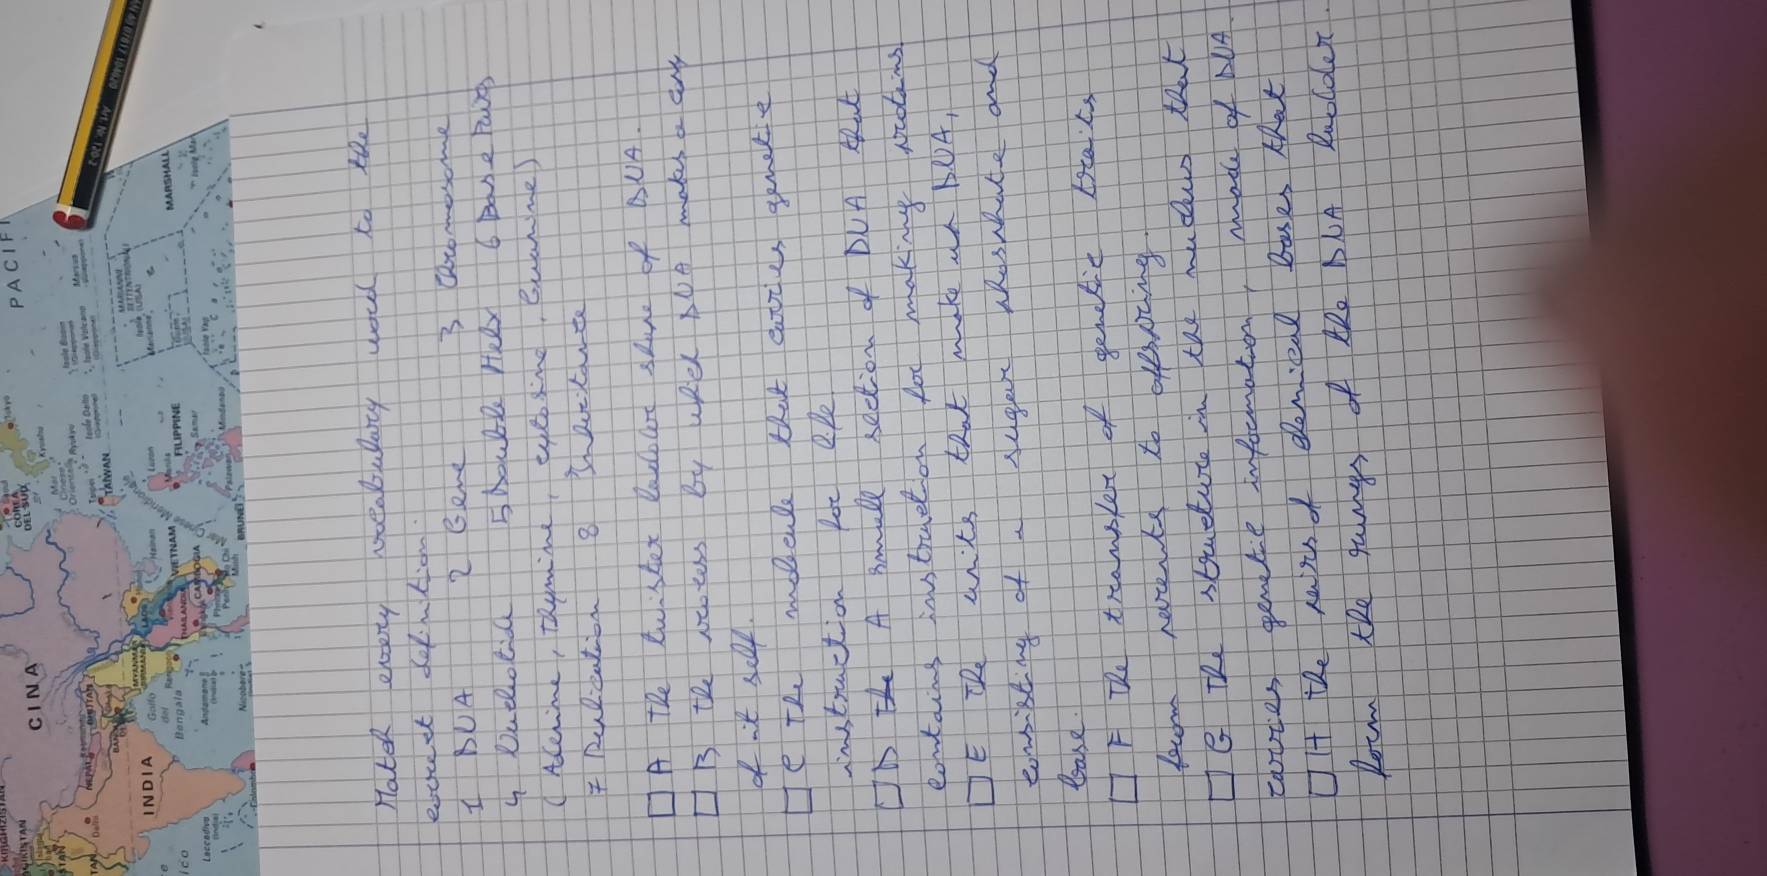 Match every vocabulary word to the
correct definition.
1 DNA 2 Gene 3 Chromosome
4 Nucleotide 5 Double Helix 6 Base Pairs
(Adenine, Thymine, cytosine, Guanine)
7 Replication 8 Inheritante
A The twister laddor shape of DNA.
B The process by which DNA makes a copy
of it self.
C The molecule that carries genetic
instruction for life
D A small section of DNA that
contains instruction for making proteins
E The units that make up DNA,
consisting of a suger phosphate and
base.
F The transfer of genetic traits
from parents to offspring.
G The structure in the nucleus that
carries genetic information, made of DNA.
H The pairs of chemical bases that
form the rungs of the DNA ladder.
PACIF
CINA
INDIA
TAIWAN
FILIPPINE
VIETNAM
CAMBOGIA
MARSHALL
COREA
DEL SUD
Golfo
del
Bengala
Laccadive
Andamane
Nicobare
BRUNEI
NEPAL
Tokyo
Luzon
Hainan
Marcus